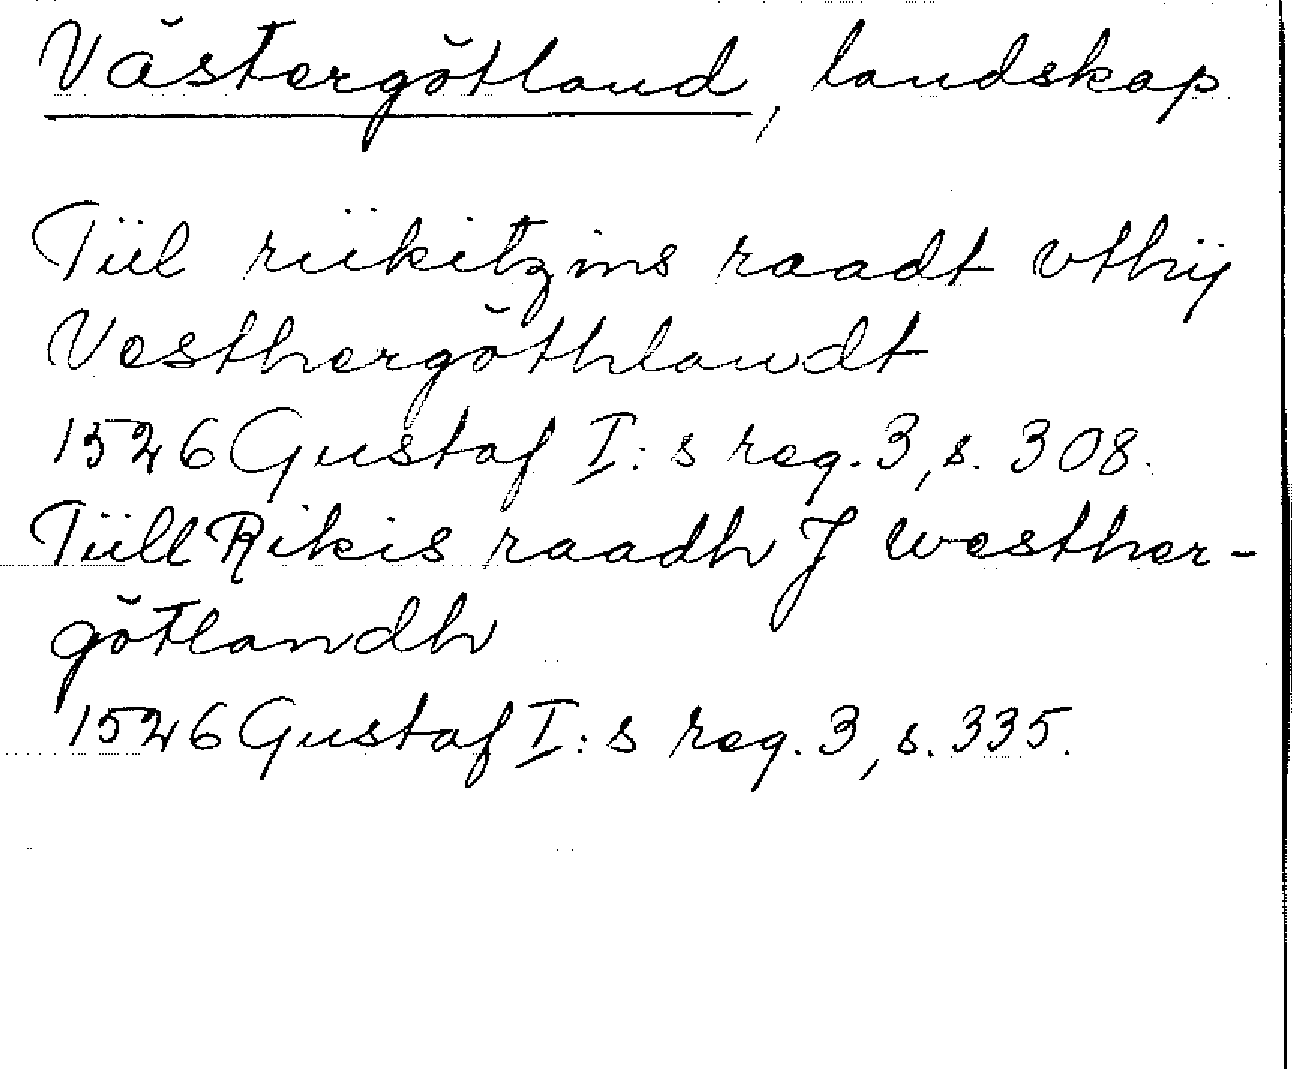 Västergötland, landskap
Tiil riikitzins raadt vthij
Vesthergöthlandt
1526 Gustaf I:s reg. 3, s. 308.
Tiill Rikis raadh J westher-
götlandh
1526 Gustaf I:s reg. 3, s. 335.